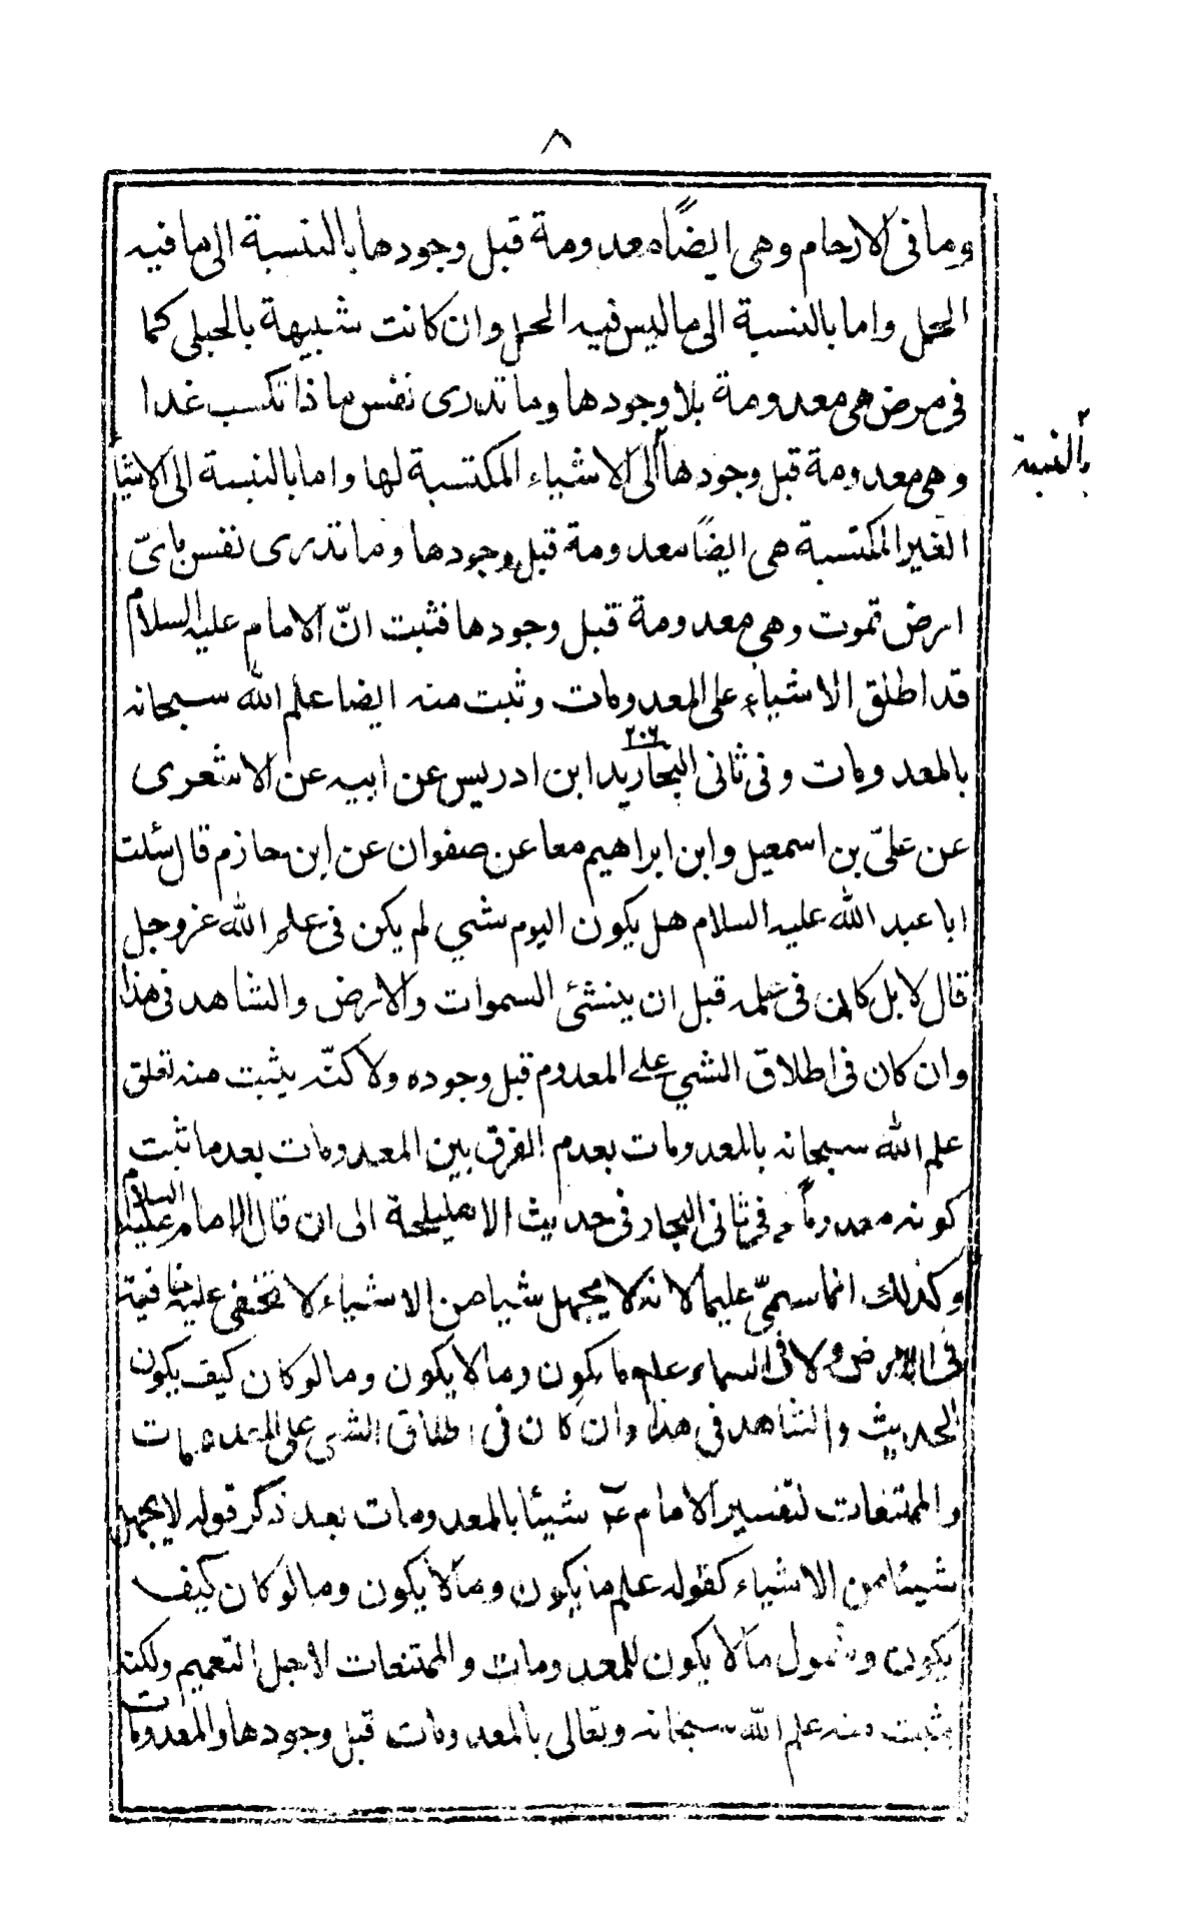 ٨
وما فى الارحام وهى ايضًا معدومة قبل وجودها بالنسبة الى ما فيه
الحمل واما بالنسبة الى ما ليس فيه الحمل وان كانت شبيهة بالحبلى كما
فى مرض هى معدومة بلا وجودها وما تدرى نفس ما ذا تكسب غدا
وهى معدومة قبل وجودها الى الاشياء المكتسبة لها واما بالنسبة الى الاشيا
بالنسبة
الغير المكتسبة هى ايضًا معدومة قبل وجودها وما تدرى نفس باىّ
ارض تموت وهى معدومة قبل وجودها فثبت انّ الامام عليه السلام
قد اطلق الاشياء على المعدومات وثبت منه ايضا علم الله سبحانه
بالمعدومات وفى ثانى البحار ٢٠٦ يد ابن ادريس عن ابيه عن الاشعرى
عن علىّ بن اسمعيل وابن ابراهيم معا عن صفوان عن ابن حازم قال سئلت
ابا عبد الله عليه السلام هل يكون اليوم شي لم يكن فى علم الله عز وجل
قال لا بل كان فى علمه قبل ان ينشئ السموات والارض والشاهد فى هذا
وان كان فى اطلاق الشي على المعدوم قبل وجوده ولاكنّه يثبت منه تعلق
علم الله سبحانه بالمعدومات بعدم الفرق بين المعدومات بعد ما ثبت
كونه معدوماً و فى ثانى البحار فى حديث الاهليلجة الى ان قال الامام عليه السلام
وكذلك انما سمىّ عليما لانه لا يجهل شيا من الاشياء لا تخفى عليه خافية
فى الارض ولا فى السماء علم ما يكون وما لا يكون وما لو كان كيف يكون
الحديث والشاهد فى هذا وان كان فى اطلاق الشى على المعدومات
والممتنعات لتفسير الامام ع شيئا بالمعدومات بعد ذكر قوله لا يجهل
شيئا من الاشياء كقوله علم ما يكون وما لا يكون وما لو كان كيف
يكون وشمول ما لا يكون للمعدومات والممتنعات لاجل التعميم ولكنه
يثبت منه علم الله سبحانه وتعالى بالمعدومات قبل وجودها والمعدومات